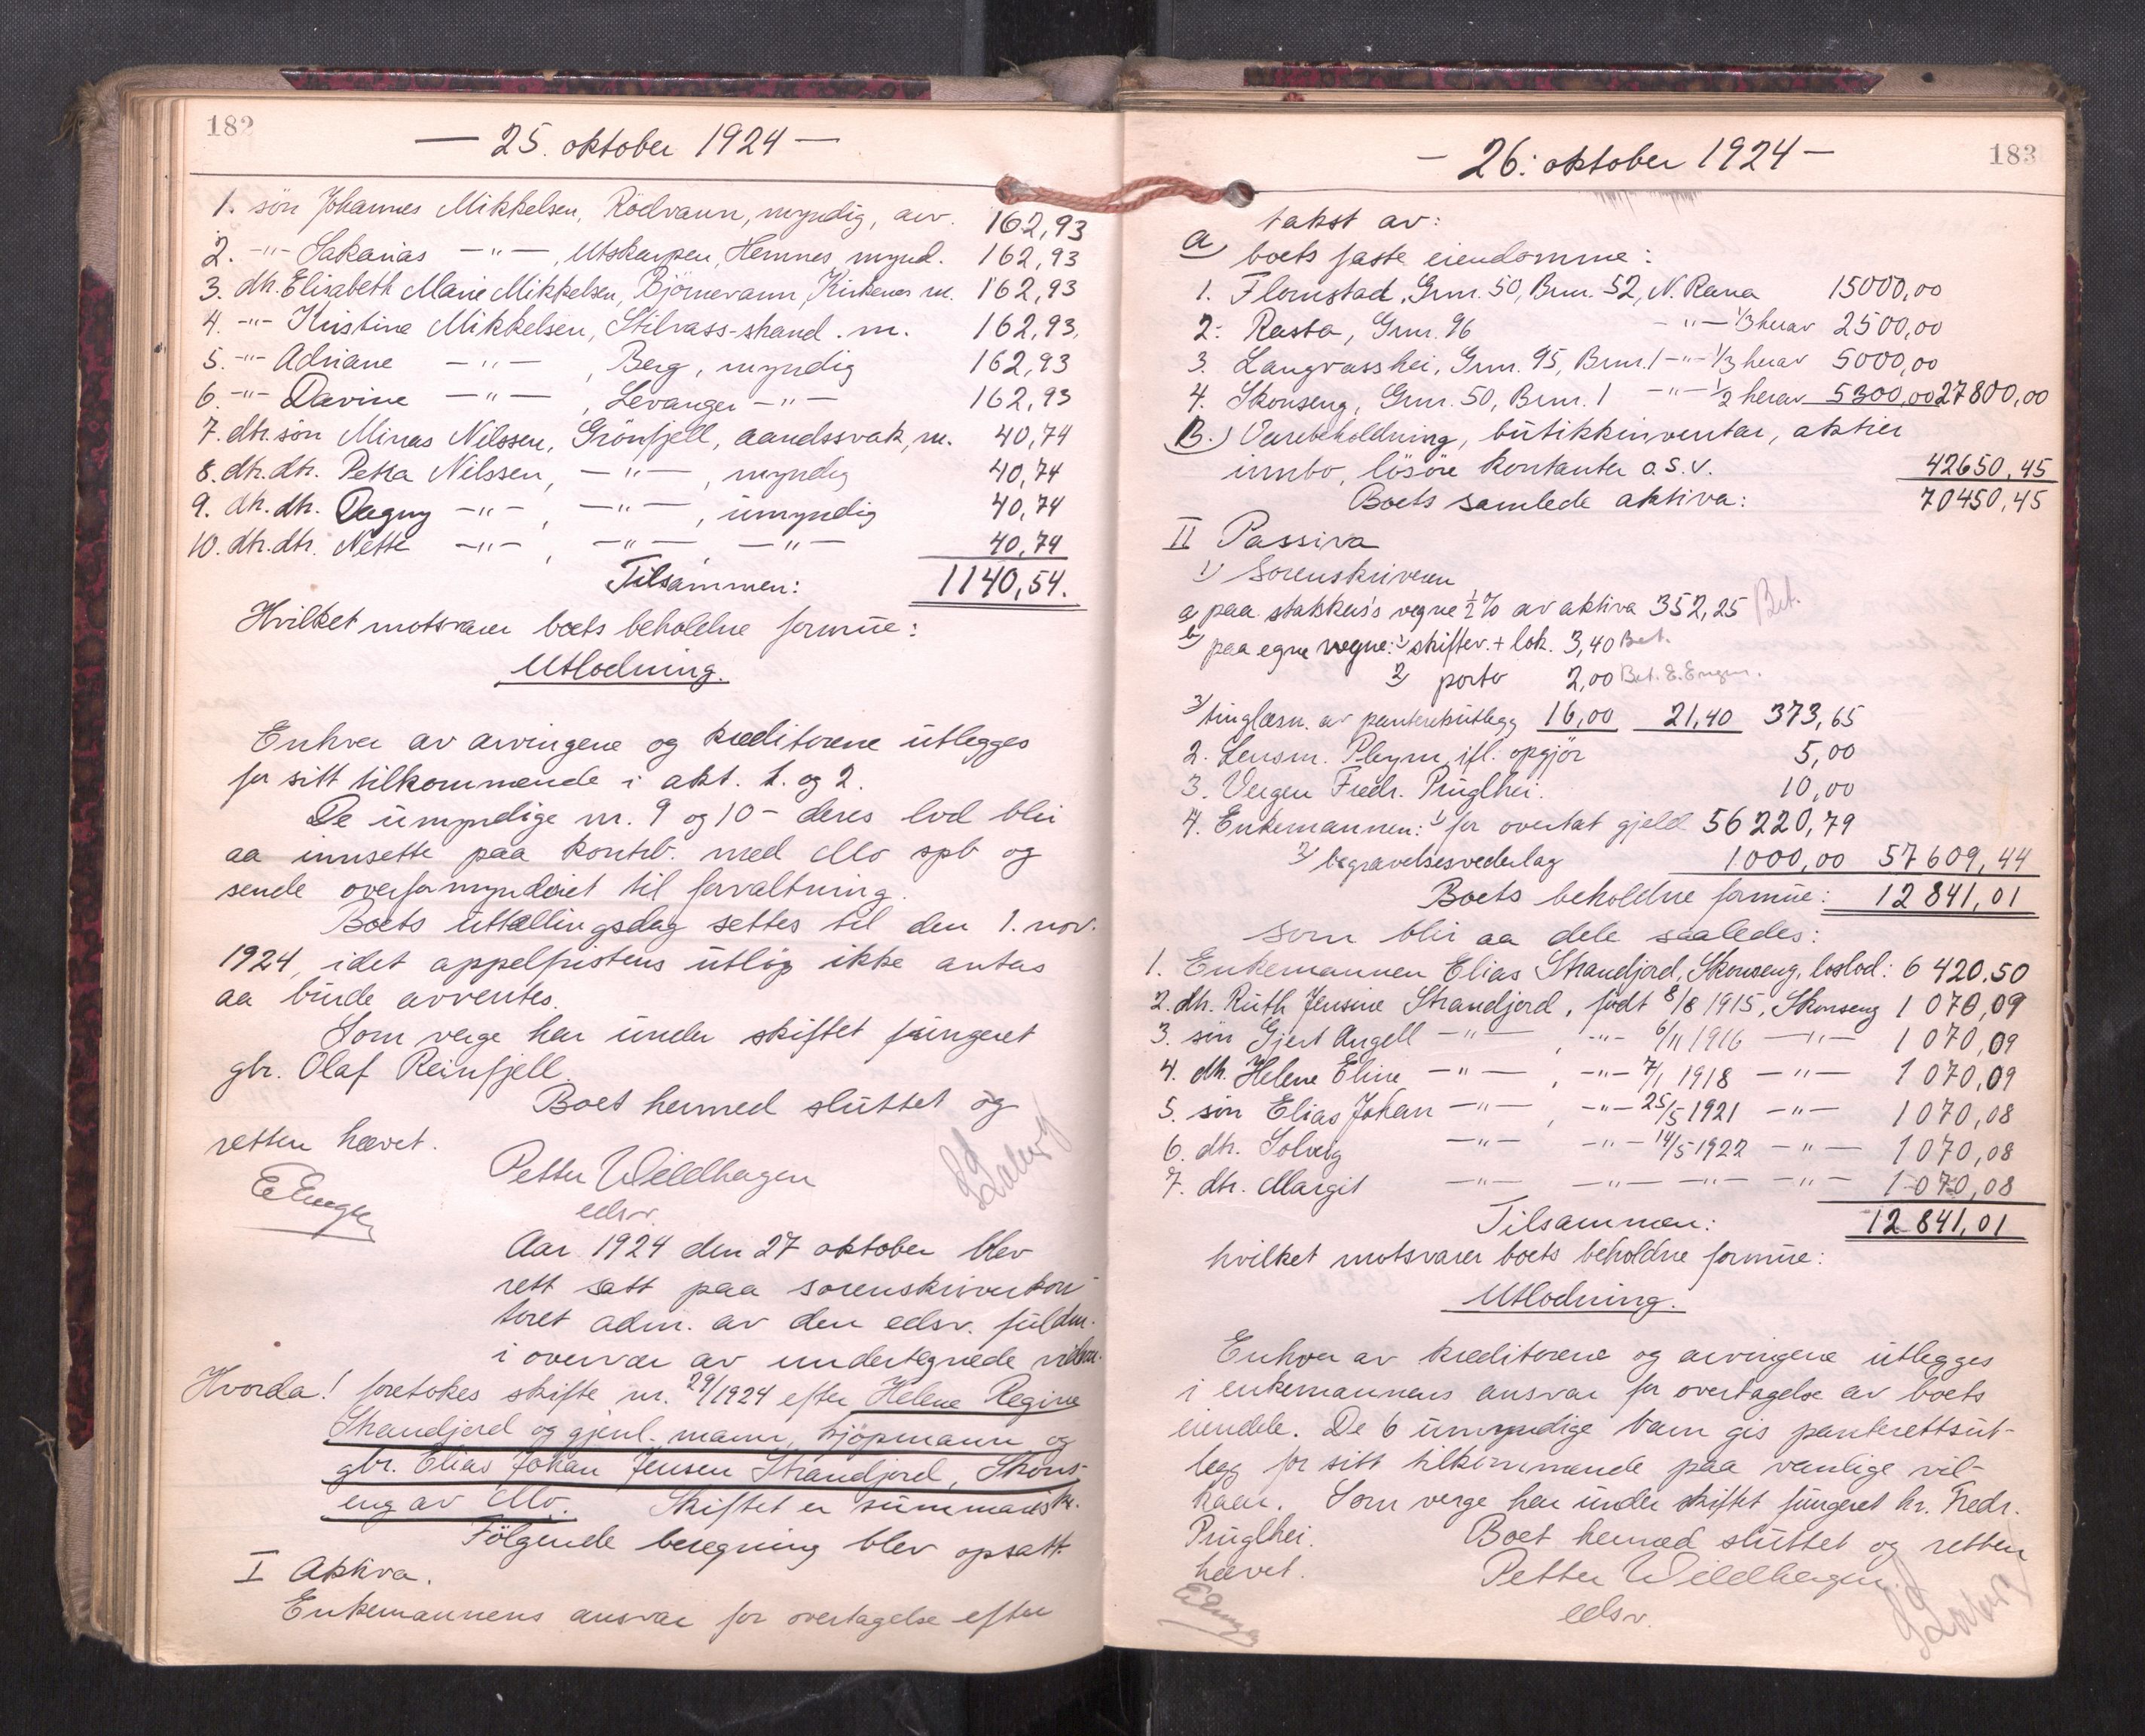 182
— 25. oktober 1924 —
1. sön Johannes Mikkelsen, Rödvann, myndig, arv. 162,93
2. -"- Sakarias -"-, Utskarpen, Hemnes, mynd. 162,93
3. dtr. Elisabeth Marie Mikkelsen, Björnevann, Kirkenes m. 162,93
4. -"- Kristine Mikkelsen, Stilvass-strand. m. 162,93.
5. -"- Adriane -"-, Berg, myndig 162,93
6. -"- Davine -"-, Levanger -"- 162,93
7. dtr. sön Minas Nilssen, Grönfjell, aandssvak, m. 40,74
8. dtr. dtr. Petra Nilssen, -"-, myndig 40,74
9. dtr. dtr. Dagny -"-, -"-, umyndig 40,74
10. dtr. dtr. Nette -"-, -"-, -"- 40,74
Tilsammen: 1140,54.
Hvilket motsvarer boets beholdne formue:
Utlodning.
Enhver av arvingene og kreditorene utlegges
for sitt tilkommende i akt. 1. og 2.
De umyndige nr. 9 og 10 - deres lod blir
aa innsette paa kontrb. med Mo spb og
sende overformynderiet til forvaltning.
Boets uttællingsdag settes til den 1. nov.
1924, idet appelfristens utløp ikke antas
aa burde avventes.
Som verge har under skiftet fungeret
gbr. Olaf Reinfjell.
Boet hermed sluttet og
retten hævet.
Petter Weldhagen
edsv.
E Enge
Aar 1924 den 27 oktober blev
rett satt paa sorenskriverkon-
toret adm. av den edsv. fuldm.
i overvær av undertegnede vidne.
Hvorda! foretokes skifte nr. 29/1924 efter Helene Regine
Strandjord og gjenl. mann, kjöpmann og
gbr. Elias Johan Jensen Strandjord, Skons-
eng av Mo. Skiftet er summarisk.
Fölgende beregning blev opsatt.
I Aktiva.
Enkemannens ansvar for overtagelse efter
— 26: oktober 1924 —
183
takst av:
a) boets faste eiendomme:
1. Flomstad, Gnr. 50, Bnr. 52, N. Rana 15000,00
2. Rasta, Gnr. 96 -"- 1/3 herav 2500,00
3. Langvasshei, Gnr. 95, Bnr. 1 -"- 1/3 herav 5000,00
4. Skonseng, Gnr. 50, Bnr. 1 -"- 1/2 herav 5300,00 27800,00
B.) Varebeholdning, butikkinventar, aktier
innbo, lösöre kontanter o.s.v. 42650,45
Boets samlede aktiva: 70450,45
II Passiva
1) Sorenskriveren
a) paa statskas's vegne 1/2 % av aktiva 352,25 Bet.
b) paa egne vegne: 1) skiftev. + lok. 3,40 Bet.
2) porto 2,00 Bet. E. Engen.
3) tinglæsn. av panteretsutlegg 16,00 21,40 373,65
2. Lensm. Pleym, ifl. opgjör 5,00
3. Vergen Fredr. Pruglhei. 10,00
4. Enkemannen: 1) for overtat gjeld 56220,79
2) begravelsesvederlag 1000,00 57609,44
Boets beholdne formue: 12841,01
som blir aa dele saaledes:
1. Enkemannen Elias Strandjord, Skonseng, boslod: 6420,50
2. dtr. Ruth Jensine Strandjord, født 8/8 1915, Skonseng 1070,09
3. sön Gjert Angell -"-, -"- 6/11 1916 -"- 1070,09
4. dtr. Helene Eline -"-, -"- 7/1 1918 -"- 1070,09
5. sön Elias Johan -"-, -"- 25/5 1921 -"- 1070,08
6. dtr. Solveig -"- -"- 14/5 1922 -"- 1070,08
7. dtr. Margit -"- -"- -"- -"- 1070,08
Tilsammen: 12841,01
hvilket motsvarer boets beholdne formue:
Utlodning.
Enhver av kreditorene og arvingene utlegges
i enkemannens ansvar for overtagelse av boets
eiendele. De 6 umyndige barn gis panterettsut-
legg for sitt tilkommende paa vanlige vil-
kaar. Som verge har under skiftet fungeret hr. Fredr.
Pruglhei. Boet hermed sluttet og retten
hævet. Petter Weldhagen.
edsv.
E Enge